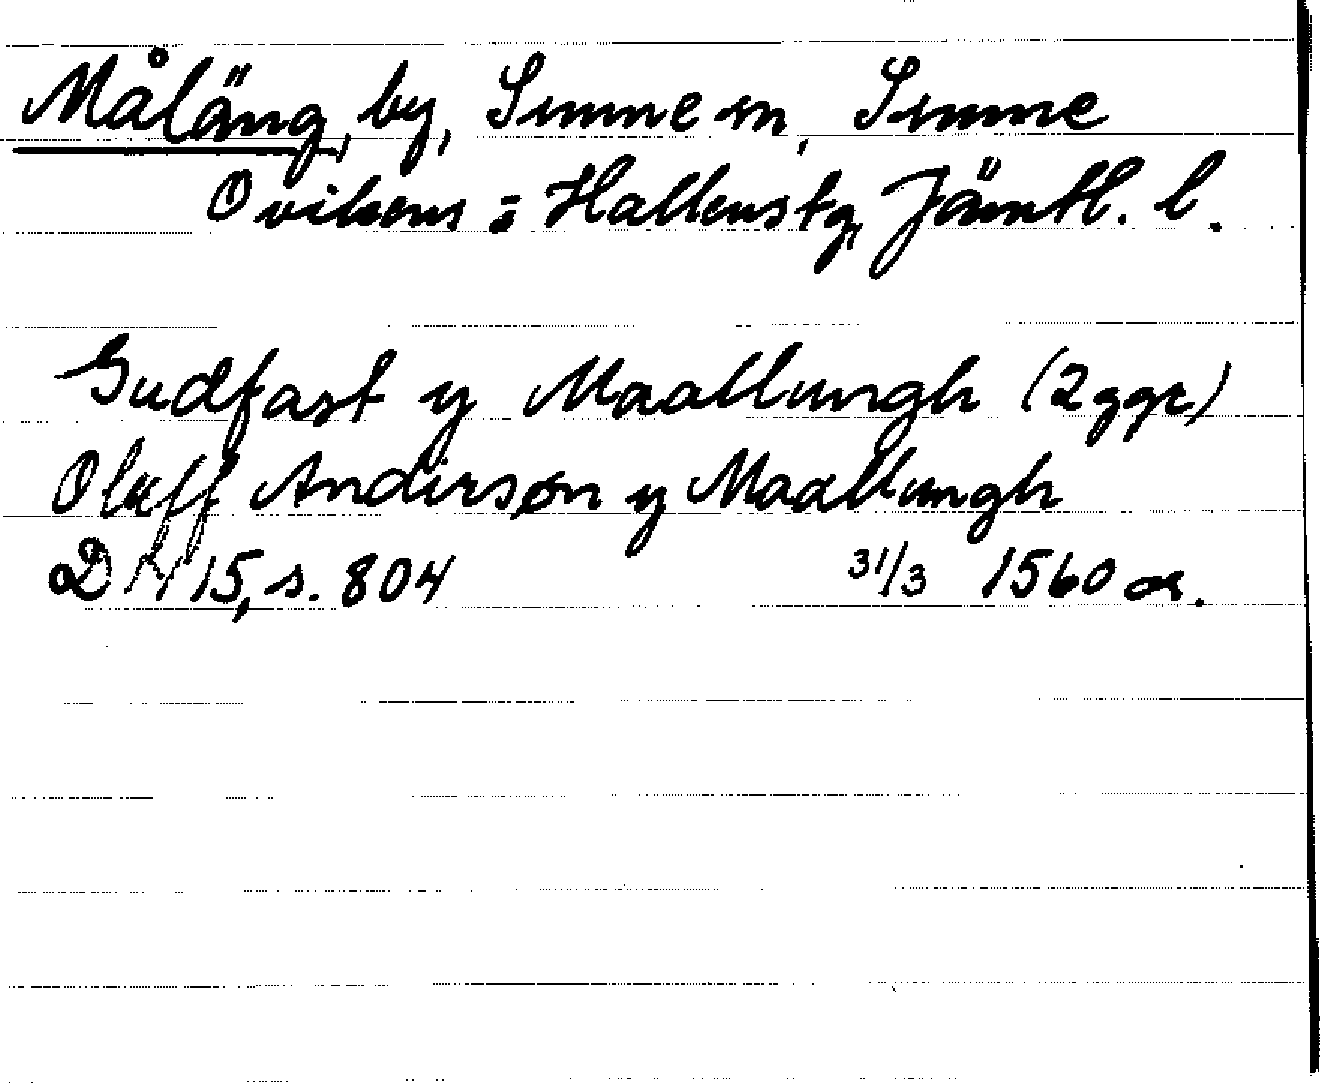 Måläng, by, Sunne sn, Sunne
Ovikens = Hallens tg, Jämtl. l.
Gudfast y Maallungh (2 ggr)
Oluff Anderssøn y Maallungh
DN 15, s. 804 31/3 1560 or.